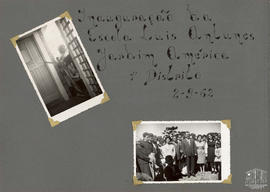 Inauguração da
Escola Luis Antunes
Jardim América
1º Distrito
2-9-62